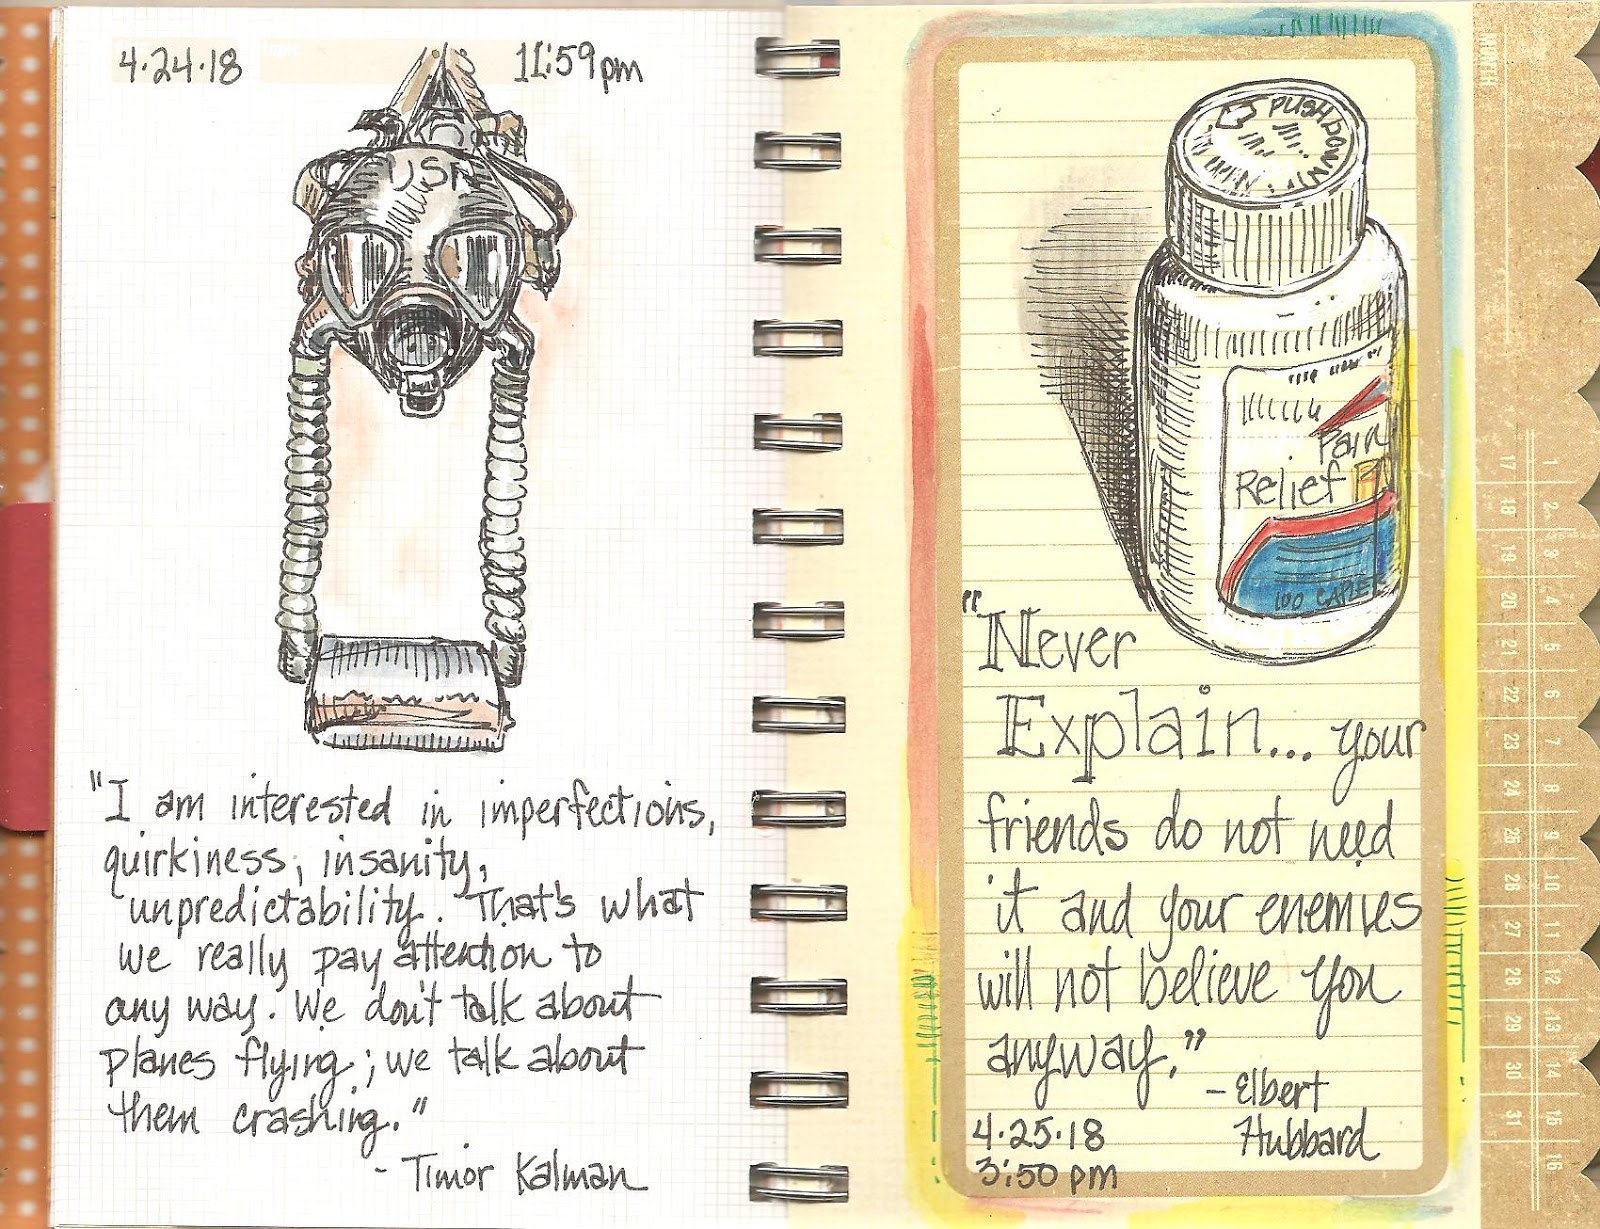 4.24.18
topic
11:59pm
USN
"I am interested in imperfections,
quirkiness, insanity,
unpredictability. That's what
we really pay attention to
any way. We don't talk about
planes flying; we talk about
them crashing."
- Timor Kalman
PUSH DOWN
Pain
Relief
100 CAPLE
"Never
Explain... your
friends do not need
it and your enemies
will not believe you
anyway."
- Elbert
Hubbard
4.25.18
3:50 pm
MONTH
1 2 3 4 5 6 7 8 9 10 11 12 13 14 15 16
17 18 19 20 21 22 23 24 25 26 27 28 29 30 31